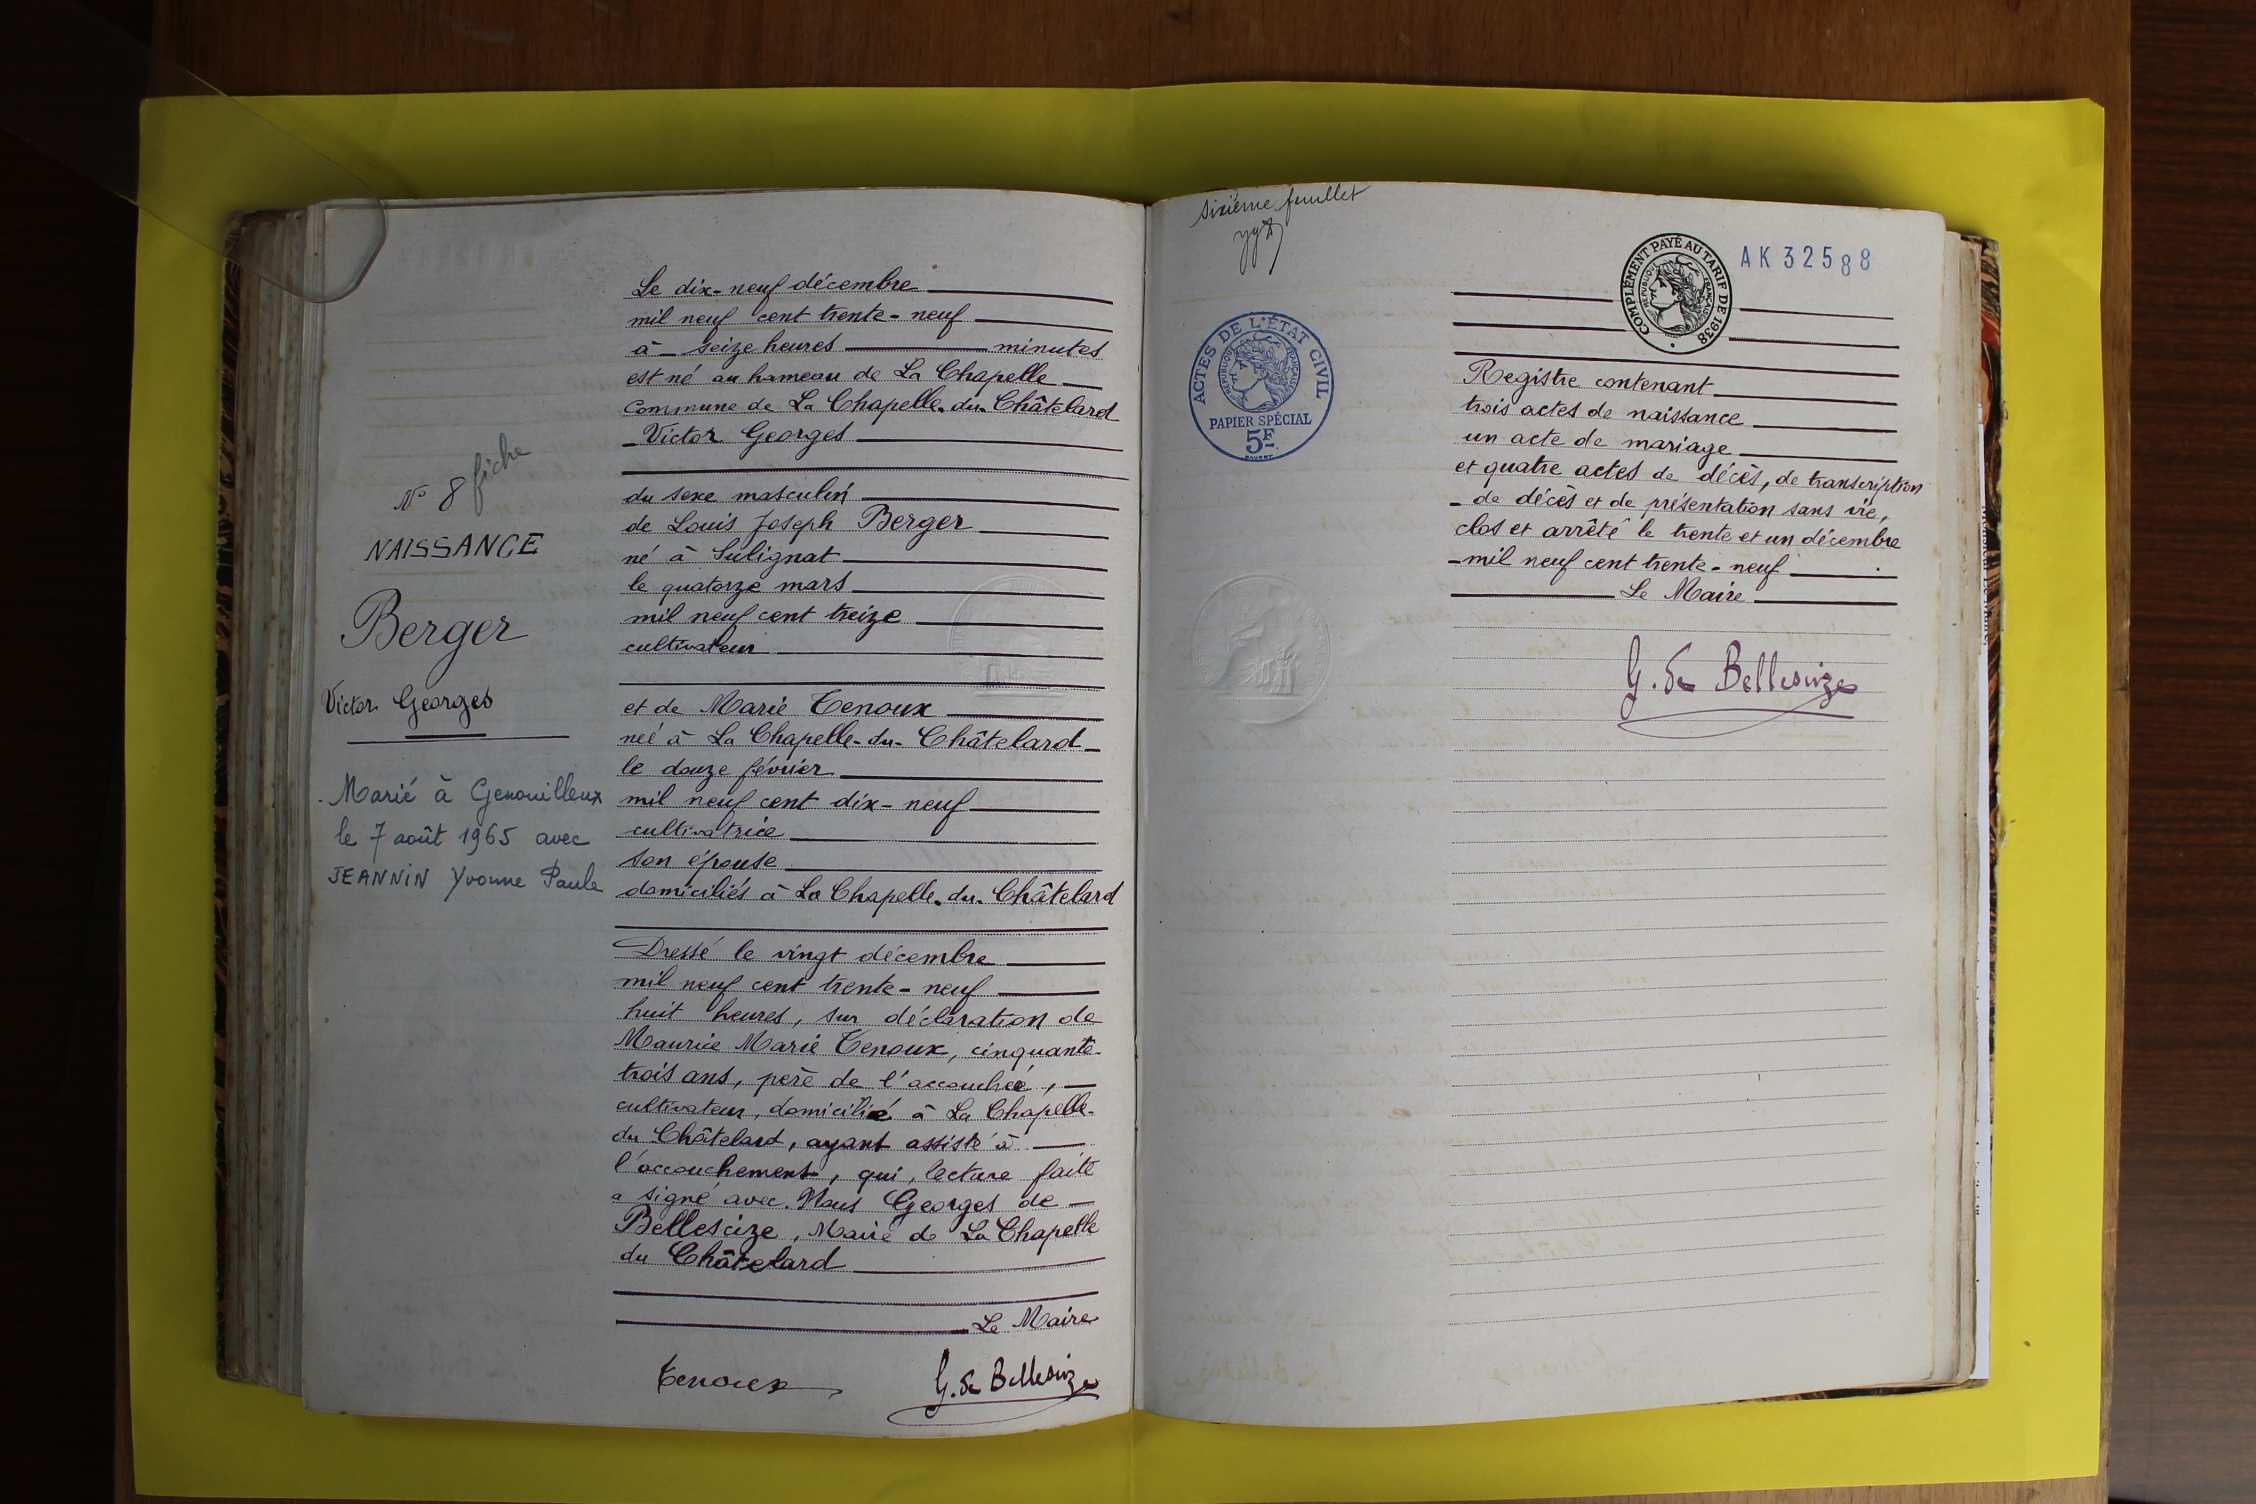 N° 8 fiche
NAISSANCE
Berger
Victor Georges
Marié à Genouilleux
le 7 août 1965 avec
JEANNIN Yvonne Paule
Le dix-neuf décembre
mil neuf cent trente-neuf
à seize heures minutes
est né au hameau de La Chapelle
commune de La Chapelle-du-Châtelard
Victor Georges
du sexe masculin
de Louis Joseph Berger
né à Sulignat
le quatorze mars
mil neuf cent treize
cultivateur
et de Marie Tenoux
née à La Chapelle-du-Châtelard
le douze février
mil neuf cent dix-neuf
cultivatrice
son épouse
domiciliés à La Chapelle-du-Châtelard
Dressé le vingt décembre
mil neuf cent trente-neuf
huit heures, sur déclaration de
Maurice Marie Tenoux, cinquante-
trois ans, père de l'accouchée,
cultivateur, domicilié à La Chapelle-
du Châtelard, ayant assisté à
l'accouchement, qui, lecture faite
a signé avec Nous Georges de
Bellescize, Maire de La Chapelle
du Châtelard
Le Maire
Tenoux
G. de Bellescize
sixième feuillet
ACTES DE L'ÉTAT CIVIL
RÉPUBLIQUE FRANÇAISE
PAPIER SPÉCIAL
5F
COMPLÉMENT PAYÉ AU TARIF DE 1938
RÉPUBLIQUE FRANÇAISE
AK 32588
Registre contenant
trois actes de naissance
un acte de mariage
et quatre actes de décès, de transcription
de décès et de présentation sans vie,
clos et arrêté le trente et un décembre
mil neuf cent trente-neuf
Le Maire
G. de Bellescize